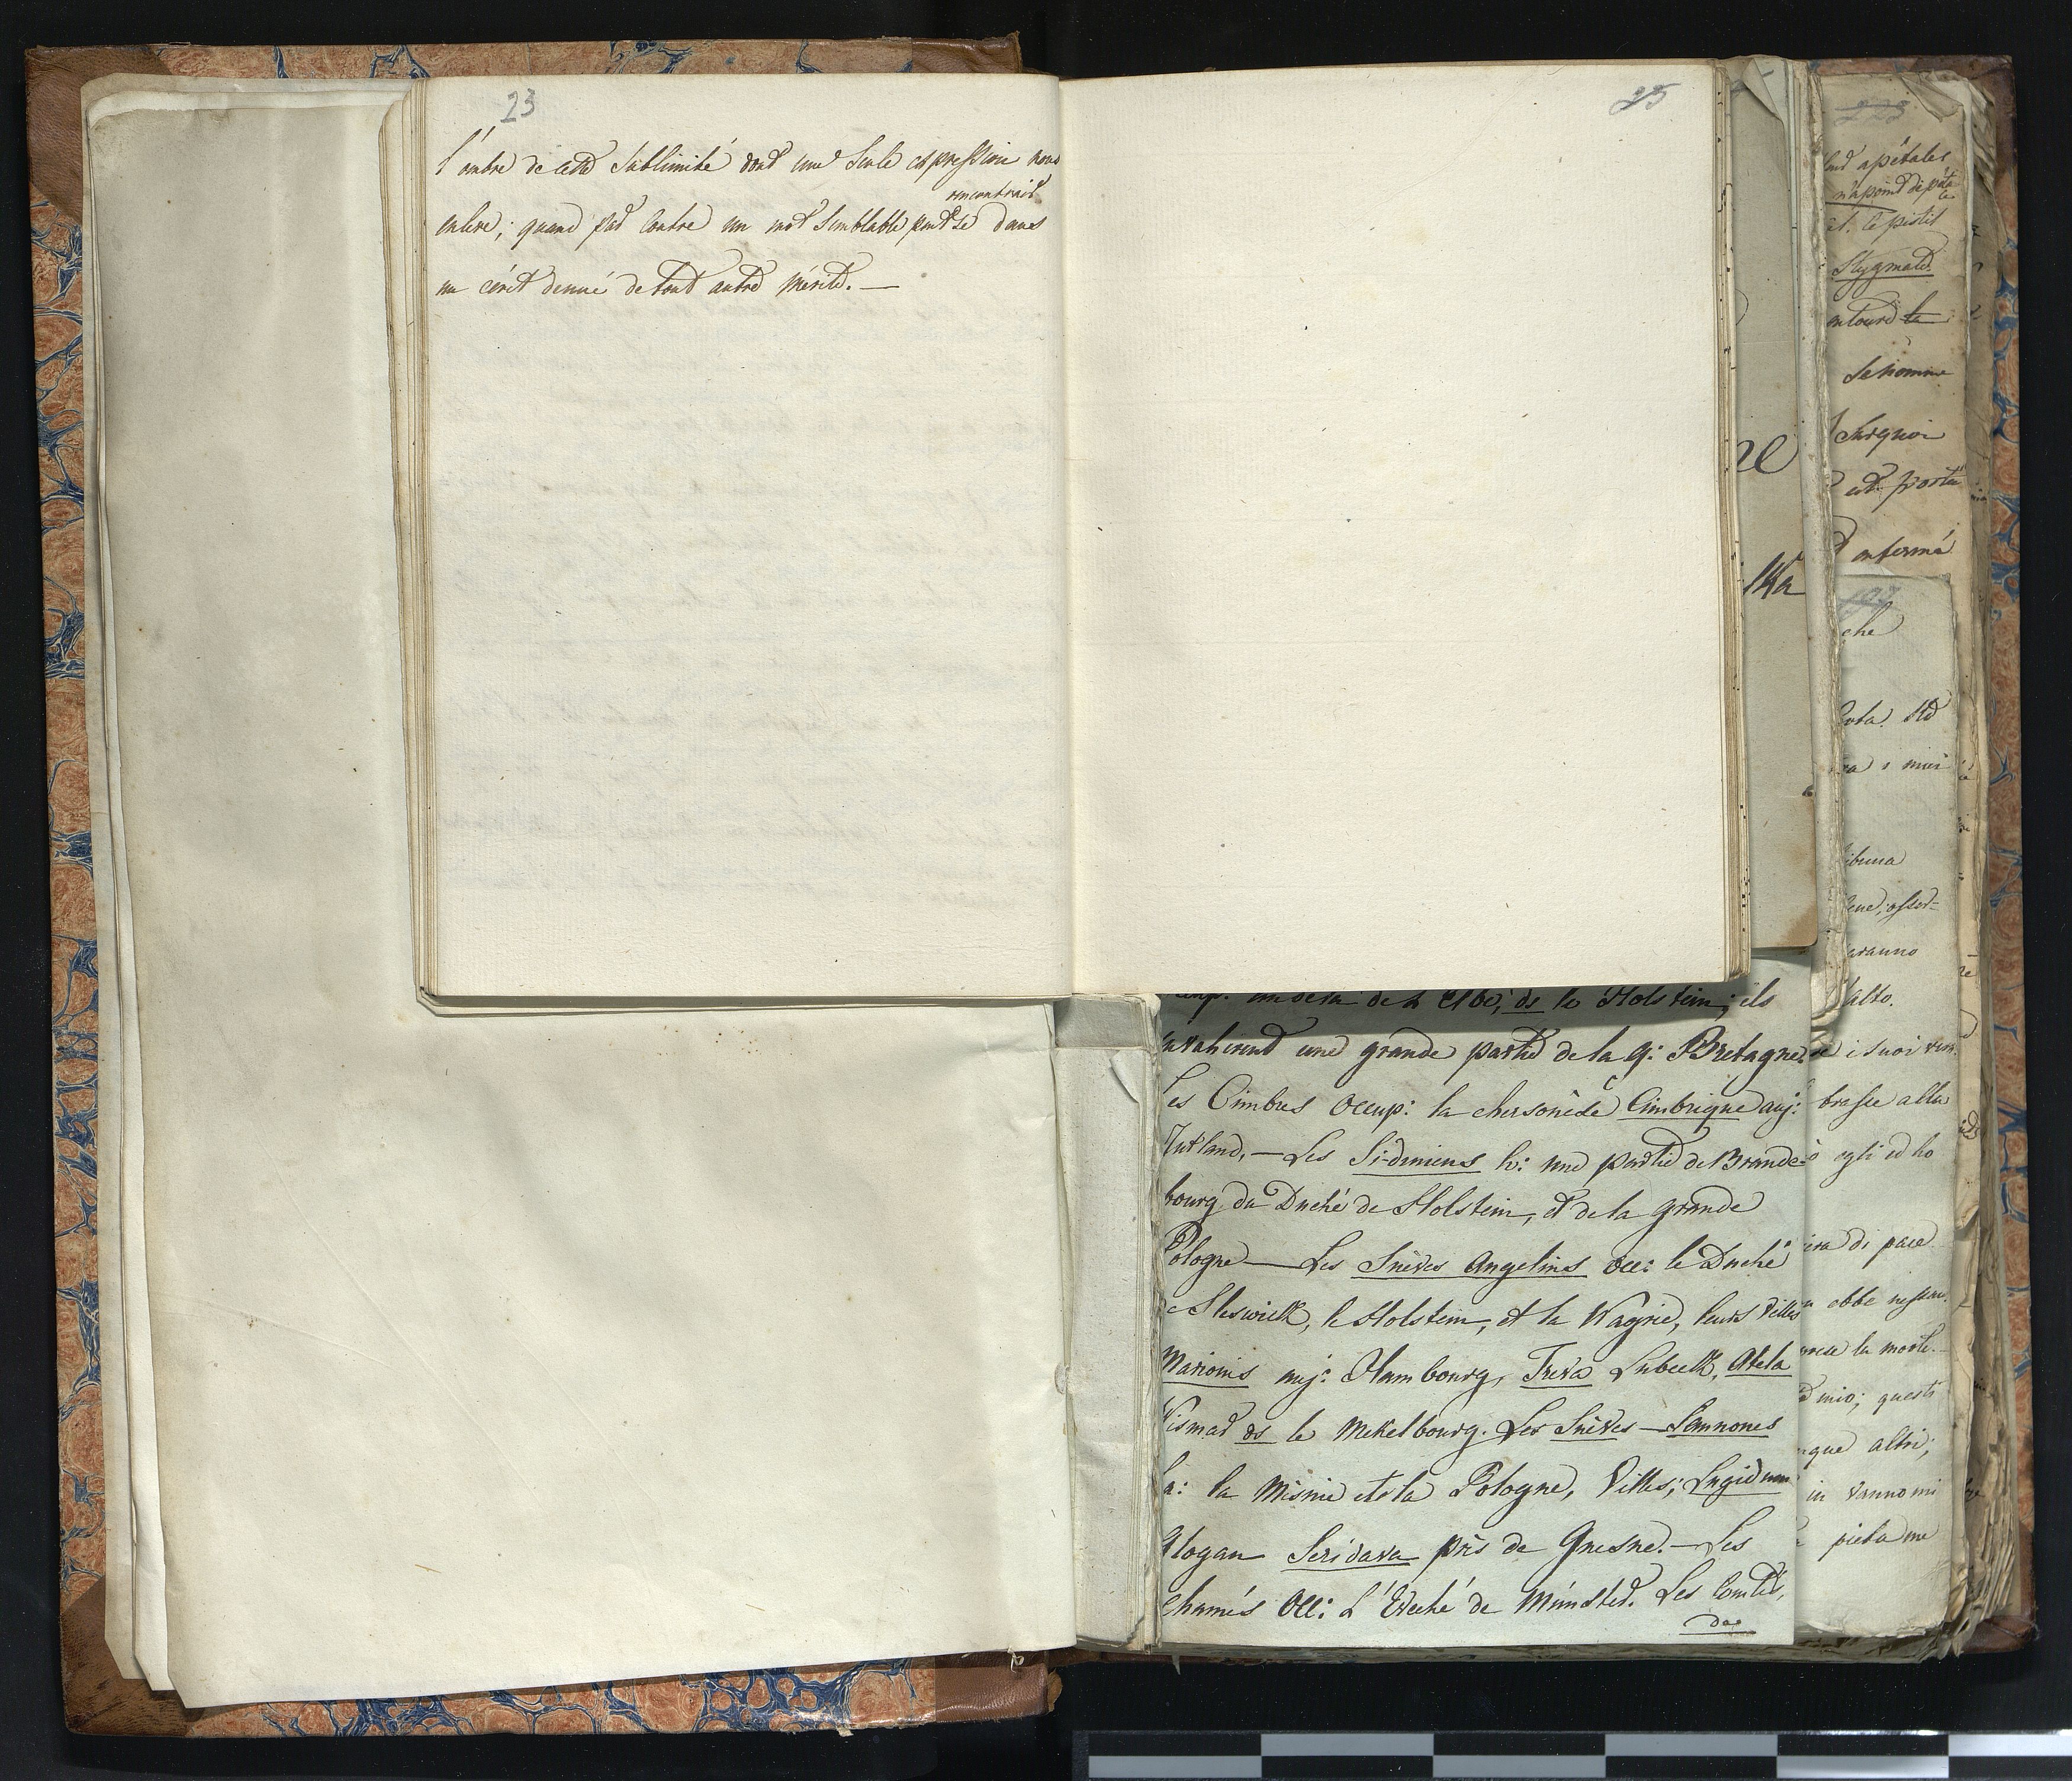 23
l'ombre de cette Sublimité dont une Seule expression nous
rencontrait
enleve; quand par contre un mot Semblable peut se dans
un écrit denué de tout autre mérite. —
25
de L'Elbe, ds le Holstein; ils
envahirent une grande partie de la g: Bretagne.
Les Cimbres Occup: la chersonèse Cimbrique auj:
Jutland, — Les Sidiniens h: une partie de Brande-
bourg du Duché de Holstein, et de la grande
Pologne — Les Suèves Angelins occ: le Duché
de Sleswick, le Holstein, et la Wagrie, leurs Villes
Marionis auj: Hambourg, Treva Lubeck, Atela
Wismar ds le Mekelbourg. Les Suèves — Semnones
la Misnie et la Pologne, Villes; Lugidum
Glogau Seridava près de Gnesne. — Les
Chamés Occ: L'Evéché de Munster. Les Comtés,
de
223
apétales
n'a point de péta
les
et. le pistil
Stygmate
entoure la
Se nomme
Surquoi
est porté
enfermé
che
mui
tribuna
aranno
l'alto.
i suoi
alla
egli ed ho
di pace
ebbe
la morte.
mio; questi
altri;
in vanno mi
pieta me